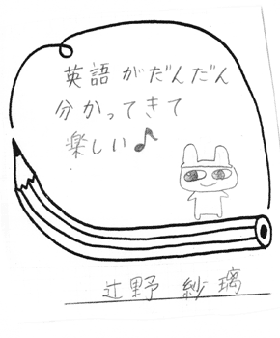 英語がだんだん
分かってきて
楽しい♪
辻野 紗璃